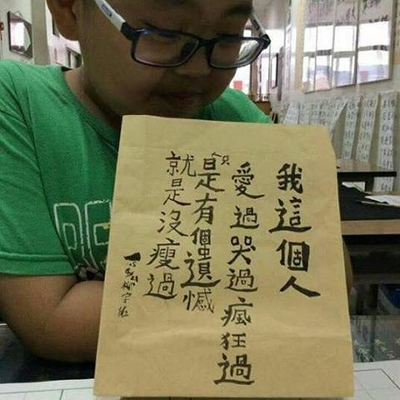 我這個人
愛過哭過瘋狂過
只是有個遺憾
就是沒瘦過